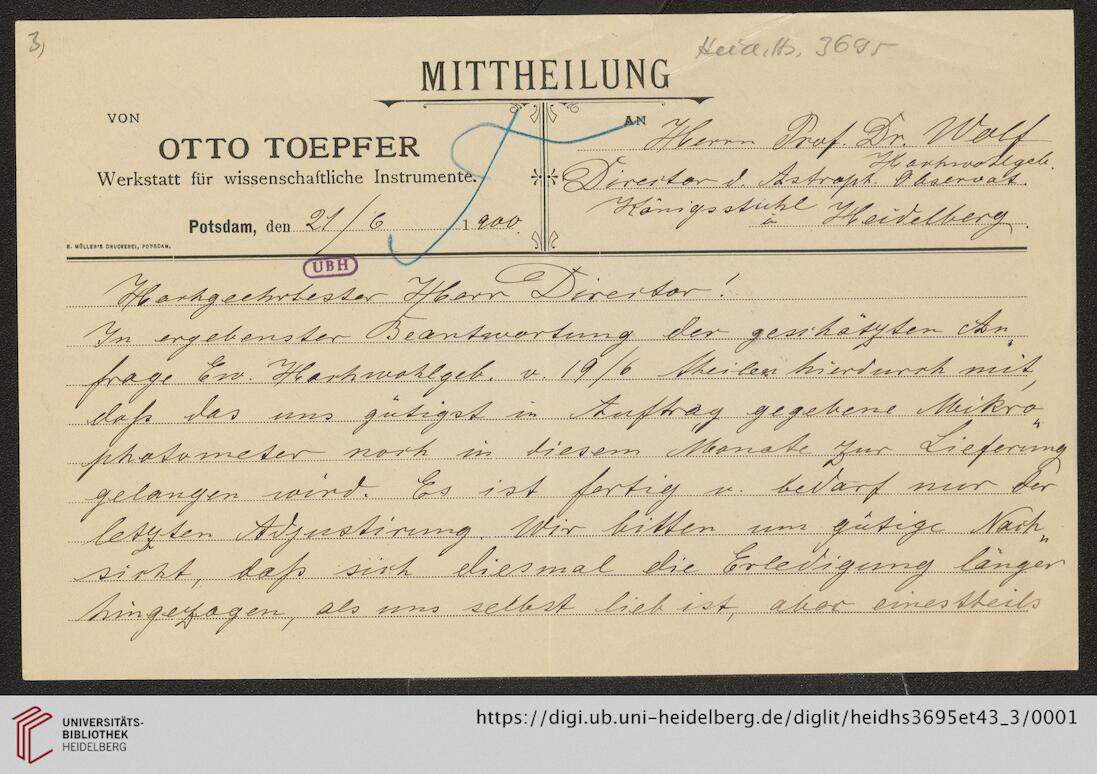 3)
Heid. Hs. 3695
MITTHEILUNG
VON
OTTO TOEPFER
Werkstatt für wissenschaftliche Instrumente.
Potsdam, den 21/6 1900.
R. MÜLLER'S DRUCKEREI, POTSDAM.
AN
Herrn Prof. Dr. Wolf
Hochwohlgeb.
Director d. Astroph. Observat.
Königsstuhl
Heidelberg.
UBH
Hochgeehrtester Herr Director!
In ergebenster Beantwortung der geschätzten An„
frage Ew. Hochwohlgeb. v. 19/6 theilen hierdurch mit,
daß das uns gütigst in Auftrag gegebene Mikro„
photometer noch in diesem Monate zur Lieferung
gelangen wird. Es ist fertig u. bedarf nur der
letzten Adjustirung. Wir bitten um gütige Nach„
sicht, daß sich diesmal die Erledigung länger
hingezogen, als uns selbst lieb ist, aber einestheils
UNIVERSITÄTS-
BIBLIOTHEK
HEIDELBERG
https://digi.ub.uni-heidelberg.de/diglit/heidhs3695et43_3/0001